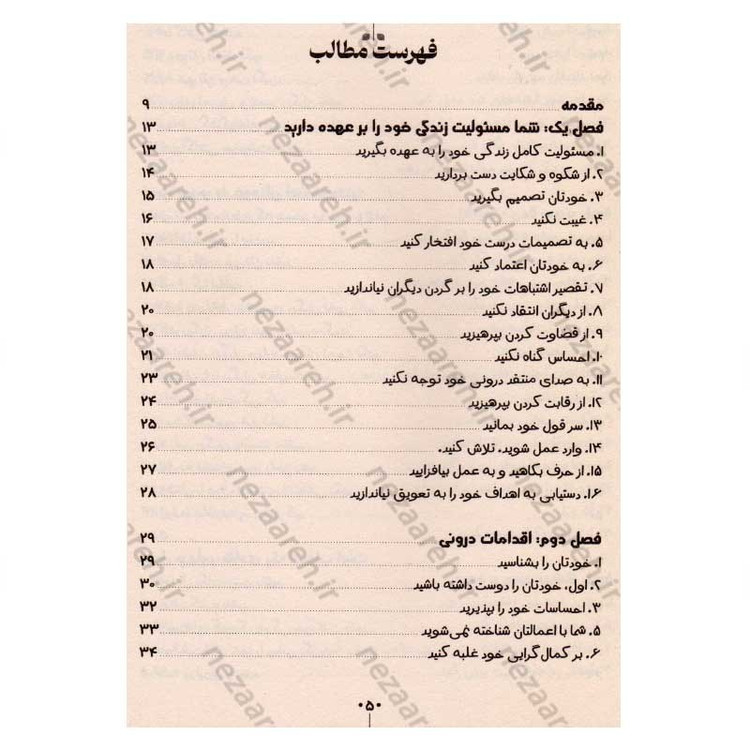 فهرست مطالب
مقدمه ۹
فصل یک: شما مسئولیت زندگی خود را بر عهده دارید ۱۳
۱. مسئولیت کامل زندگی خود را به عهده بگیرید ۱۳
۲. از شکوه و شکایت دست بردارید ۱۴
۳. خودتان تصمیم بگیرید ۱۵
۴. غیبت نکنید ۱۶
۵. به تصمیمات درست خود افتخار کنید ۱۷
۶. به خودتان اعتماد کنید ۱۸
۷. تقصیر اشتباهات خود را بر گردن دیگران نیاندازید ۱۸
۸. از دیگران انتقاد نکنید ۲۰
۹. از قضاوت کردن بپرهیزید ۲۰
۱۰. احساس گناه نکنید ۲۱
۱۱. به صدای منتقد درونی خود توجه نکنید ۲۳
۱۲. از رقابت کردن بپرهیزید ۲۴
۱۳. سر قول خود بمانید ۲۵
۱۴. وارد عمل شوید، تلاش کنید. ۲۶
۱۵. از حرف بکاهید و به عمل بیافزایید ۲۷
۱۶. دستیابی به اهداف خود را به تعویق نیاندازید ۲۸
فصل دوم: اقدامات درونی ۲۹
۱. خودتان را بشناسید ۲۹
۲. اول، خودتان را دوست داشته باشید ۳۰
۳. احساسات خود را بپذیرید ۳۲
۵. شما با اعمالتان شناخته نمی‌شوید ۳۳
۶. بر کمال‌گرایی خود غلبه کنید ۳۴
۵
nezaareh.ir